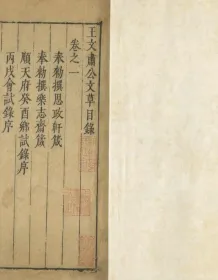 王文肅公文草目錄
卷之一
奉勑撰思政軒箴
奉勑撰樂志齋箴
順天府癸酉鄉試錄序
丙戌會試錄序